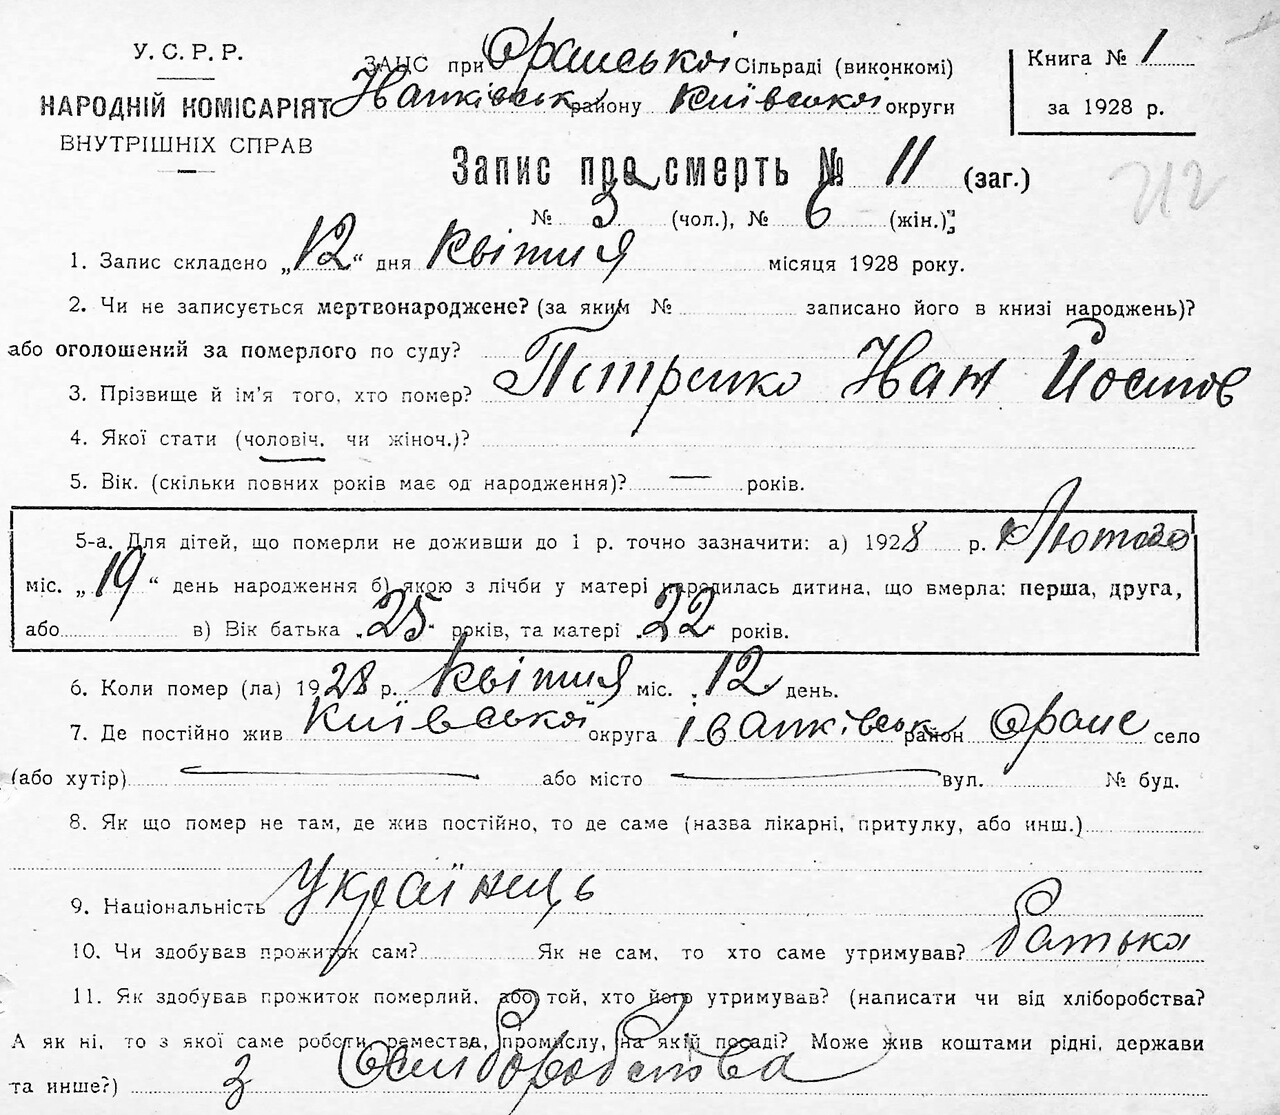 У. С. Р. Р.
НАРОДНІЙ КОМІСАРІЯТ
ВНУТРІШНІХ СПРАВ
ЗАГС при Оранської Сільраді (виконкомі)
району Київської округи
Книга № 1
за 1928 р.
Запис про смерть № 11 (заг.)
№ 3 (чол.), № 6 (жін.)
212
1. Запис складено „12“ дня Квітня місяця 1928 року.
2. Чи не записується мертвонароджене? (за яким № записано його в книзі народжень)?
або оголошений за померлого по суду?
3. Прізвище й ім'я того, хто помер? Петренко Иван Йосипов
4. Якої стати (чоловіч. чи жіноч.)?
5. Вік. (скільки повних років має од народження)? — років.
5-а. Для дітей, що померли не доживши до 1 р. точно зазначити: а) 1928 р. Лютого
міс. „19“ день народження б) якою з лічби у матері народилась дитина, що вмерла: перша, друга,
або в) Вік батька 25 років, та матері 22 років.
6. Коли помер (ла) 1928 р. Квітня міс. 12 день.
7. Де постійно жив Київської округа Іванківськ район Оране село
(або хутір) або місто вул. № буд.
8. Як що помер не там, де жив постійно, то де саме (назва лікарні, притулку, або инш.)
9. Національність Українець
10. Чи здобував прожиток сам? Як не сам, то хто саме утримував? батько
11. Як здобував прожиток померлий, або той, хто його утримував? (написати чи від хліборобства?
А як ні, то з якої саме роботи, ремества, промислу, на якій посаді? Може жив коштами рідні, держави
та инше?) з